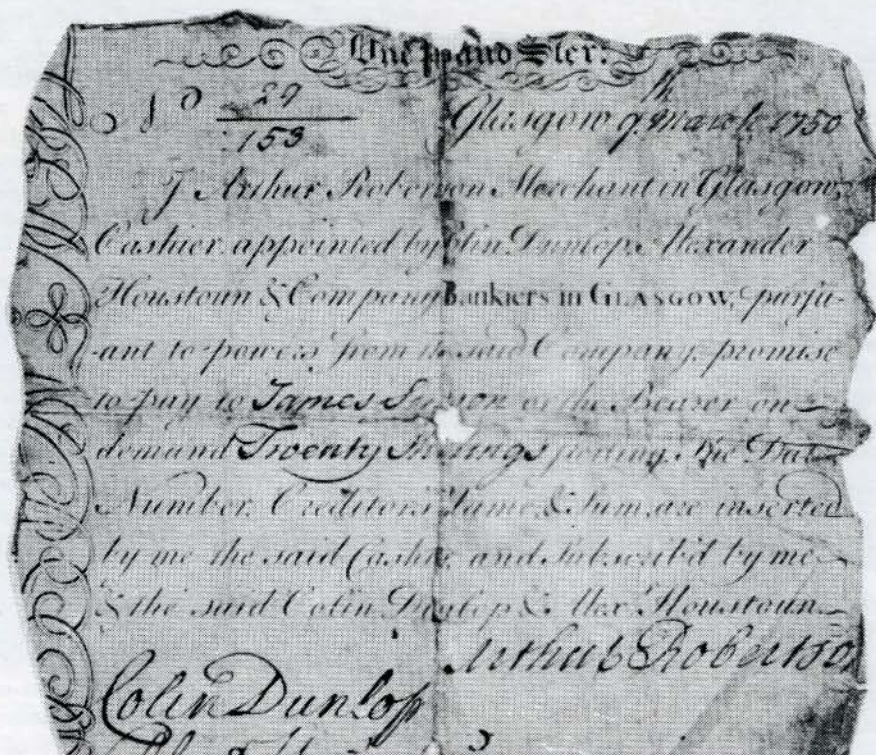 One pound Ster:
No 29
153
Glasgow 9th March 1750
I Arthur Roberson Merchant in Glasgow
Cashier appointed by Colin Dunlop, Alexander
Houstoun & Company Bankiers in GLASGOW, purſu-
ant to powers from the said Company, promise
to pay to James Simson or the Bearer on
demand Twenty Shillings ſterling. The Date
Number, Creditor's Name, & Sum, are inserted
by me the said Cashier, and Subscrib'd by me
& the said Colin Dunlop & Alex Houstoun
Arthur Robertson
Colin Dunlop